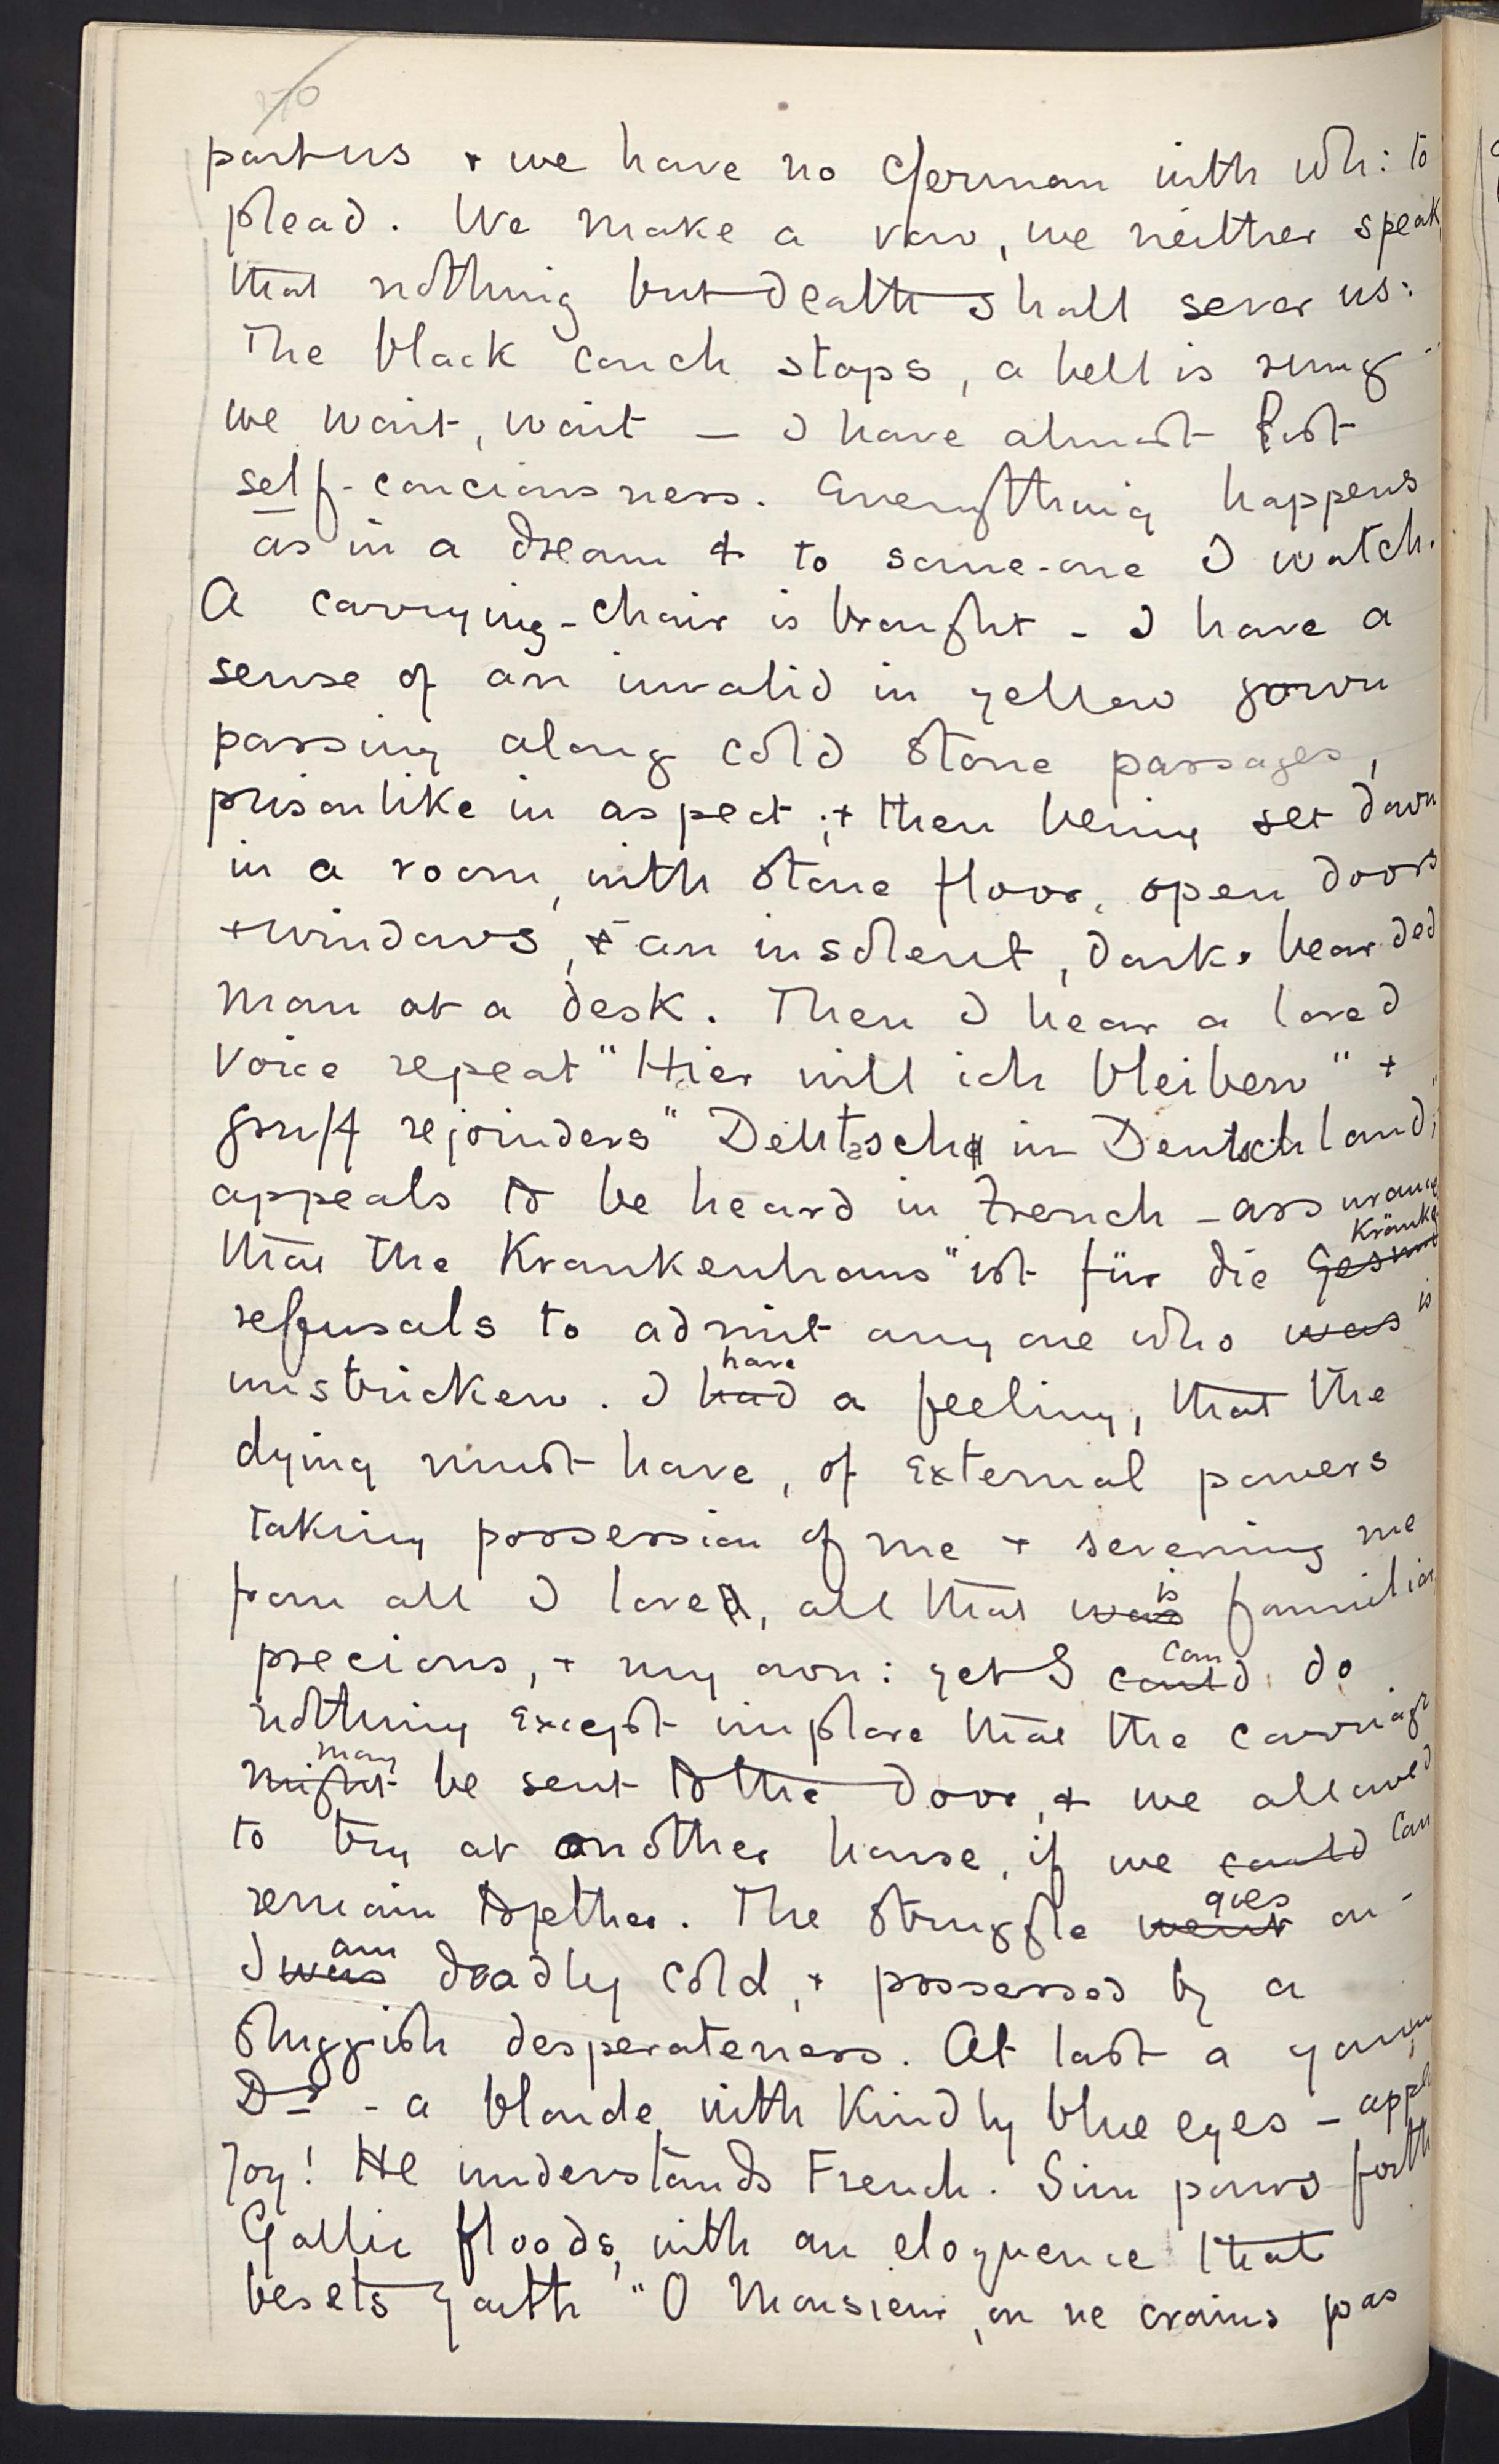 270
part us + we have no German with wh: to
plead. We make a vow, we neither speak,
that nothing but death shall sever us:
The black couch stops, a bell is rung -
we wait, wait — I have almost lost
self-conciousness. Everything happens
as in a dream & to some-one I watch.
A carrying-chair is brought - I have a
sense of an invalid in yellow gown
passing along cold stone passages,
prisonlike in aspect; + then being set down
in a room, with stone floor, open doors
+ windows, + an insolent, dark-bearded
man at a desk. Then I hear a loved
voice repeat "Hier will ich bleiben" +
gruff rejoinders "Deutsch in Deutschland;"
appeals to be heard in French - assurance
Kränke
that the Krankenhaus "ist für die
refusals to admit any one who was is
have
unstricken. I had a feeling, that the
dying must have, of external powers
taking possession of me + severing me
is
from all I loved, all that was familiar
can
precious, + my own: yet I could do
nothing except implore that the carriage
may
might be sent to the door, & we allowed
to try at another house, if we could can
goes
remain together. The struggle went on -
am
I was deadly cold, + possessed by a
sluggish desperateness. At last a young
Dr - a blonde with kindly blue eyes -
Joy! He understands French. Sim pours forth
Gallic floods, with an eloquence that
besets youth "O Monsieur, on ne crains pas